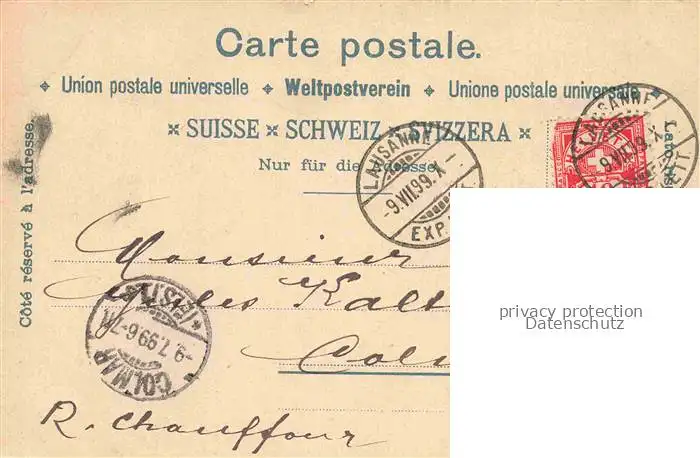 Carte postale.
Union postale universelle ⬥ Weltpostverein ⬥ Unione postale universale
SUISSE × SCHWEIZ × SVIZZERA
Nur für die Adresse
Côté réservé à l'adresse.
LAUSANNE
-9.VII.99.X-
EXP.
LAUSANNE
9.VII.99.X
Monsieur
Jules Kalt
Col
R. Chauffour
COLMAR
-9.7.99.6-7
(ELS.)
privacy protection
Datenschutz